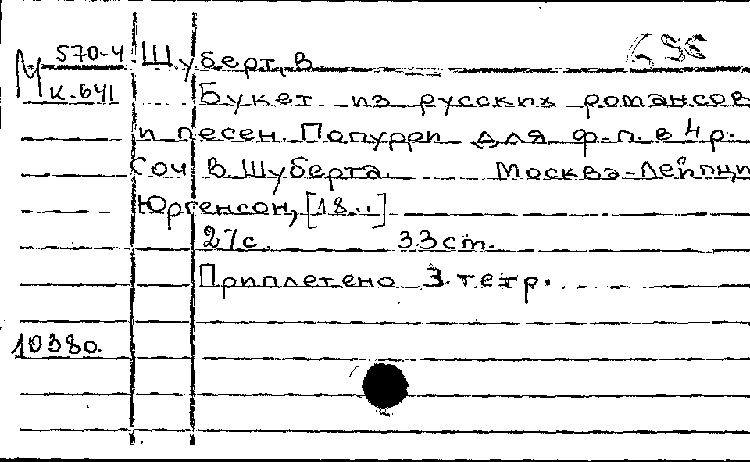 М 570-4 Шуберт, В
К-641 Букет из русских романсов
и песен. Попурри для ф.-п. в 4 р.
Соч В. Шуберта Москва-Лейпци
Юргенсон, [18..]
27с. 33cm.
Приплетено 3 тетр.
10380.